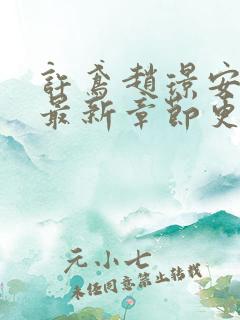 許鳶趙璟安
最新章節史
元小七
未经同意禁止转载